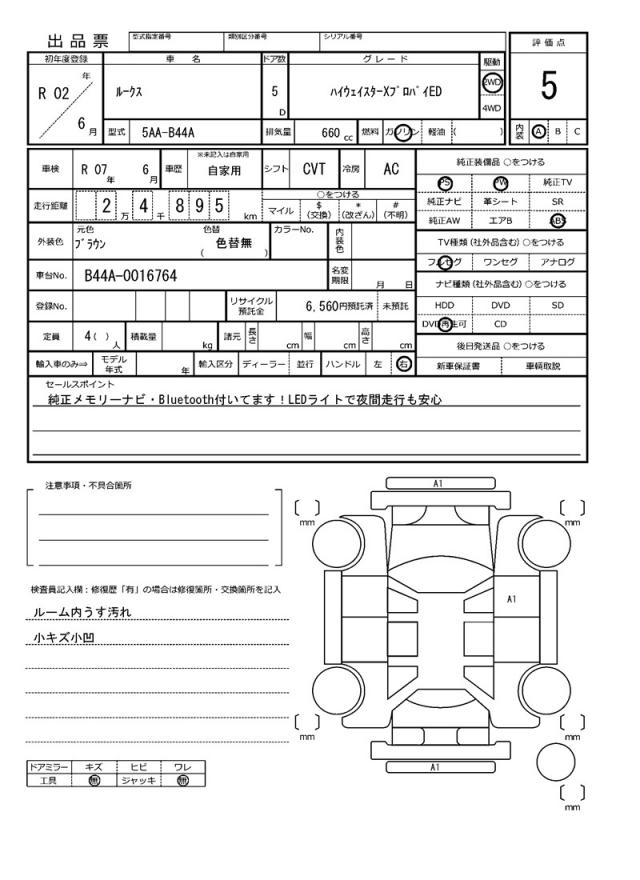 出品票
型式指定番号 類別区分番号 シリアル番号
評価点
初年度登録 車名 ドア数 グレード 駆動
R 02 年 6 月 ルークス 5 D ハイウェイスターXプロパイED 2WD 4WD
5
型式 5AA-B44A 排気量 660 cc 燃料 ガソリン 軽油 ( )
内装 A B C
車検 R 07 年 6 月 車歴 ※未記入は自家用 自家用 シフト CVT 冷房 AC
純正装備品 ○をつける
PS PW 純正TV
走行距離 2 万 4 千 8 9 5 km ○をつける
マイル $ (交換) * (改ざん) # (不明)
純正ナビ 革シート SR
純正AW エアB ABS
外装色 元色 ブラウン 色替 色替無 ( ) カラーNo. 内装色
TV種類 (社外品含む) ○をつける
フルセグ ワンセグ アナログ
車台No. B44A-0016764 名変期限 月 日
ナビ種類 (社外品含む) ○をつける
HDD DVD SD
登録No. リサイクル預託金 6,560円預託済 未預託
DVD再生可 CD
定員 4 ( ) 人 積載量 kg 諸元 長さ cm 幅 cm 高さ cm
後日発送品 ○をつける
輸入車のみ⇒ モデル年式 年 輸入区分 ディーラー 並行 ハンドル 左 右
新車保証書 車輌取説
セールスポイント
純正メモリーナビ・Bluetooth付いてます！LEDライトで夜間走行も安心
注意事項・不具合箇所
A1
mm mm
検査員記入欄：修復歴「有」の場合は修復箇所・交換箇所を記入
A1
ルーム内うす汚れ
小キズ小凹
mm mm
A1
ドアミラー キズ ヒビ ワレ
工具 無 ジャッキ 無
mm